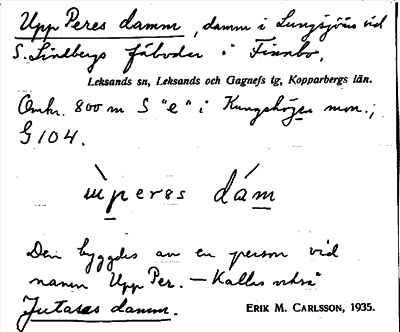 Upp Peres damm, damm i Lungsjöås vid
S. Lindbergs fäbodar i Finnbo,
Leksands sn, Leksands och Gagnefs tg, Kopparbergs län.
Omkr. 800 m S "e" i Kungshögen mon.;
G 104.
ùperəs dám
Den byggdes av en person vid
namn Upp Per. — Kallas också
Jutases damm.
ERIK M. CARLSSON, 1935.